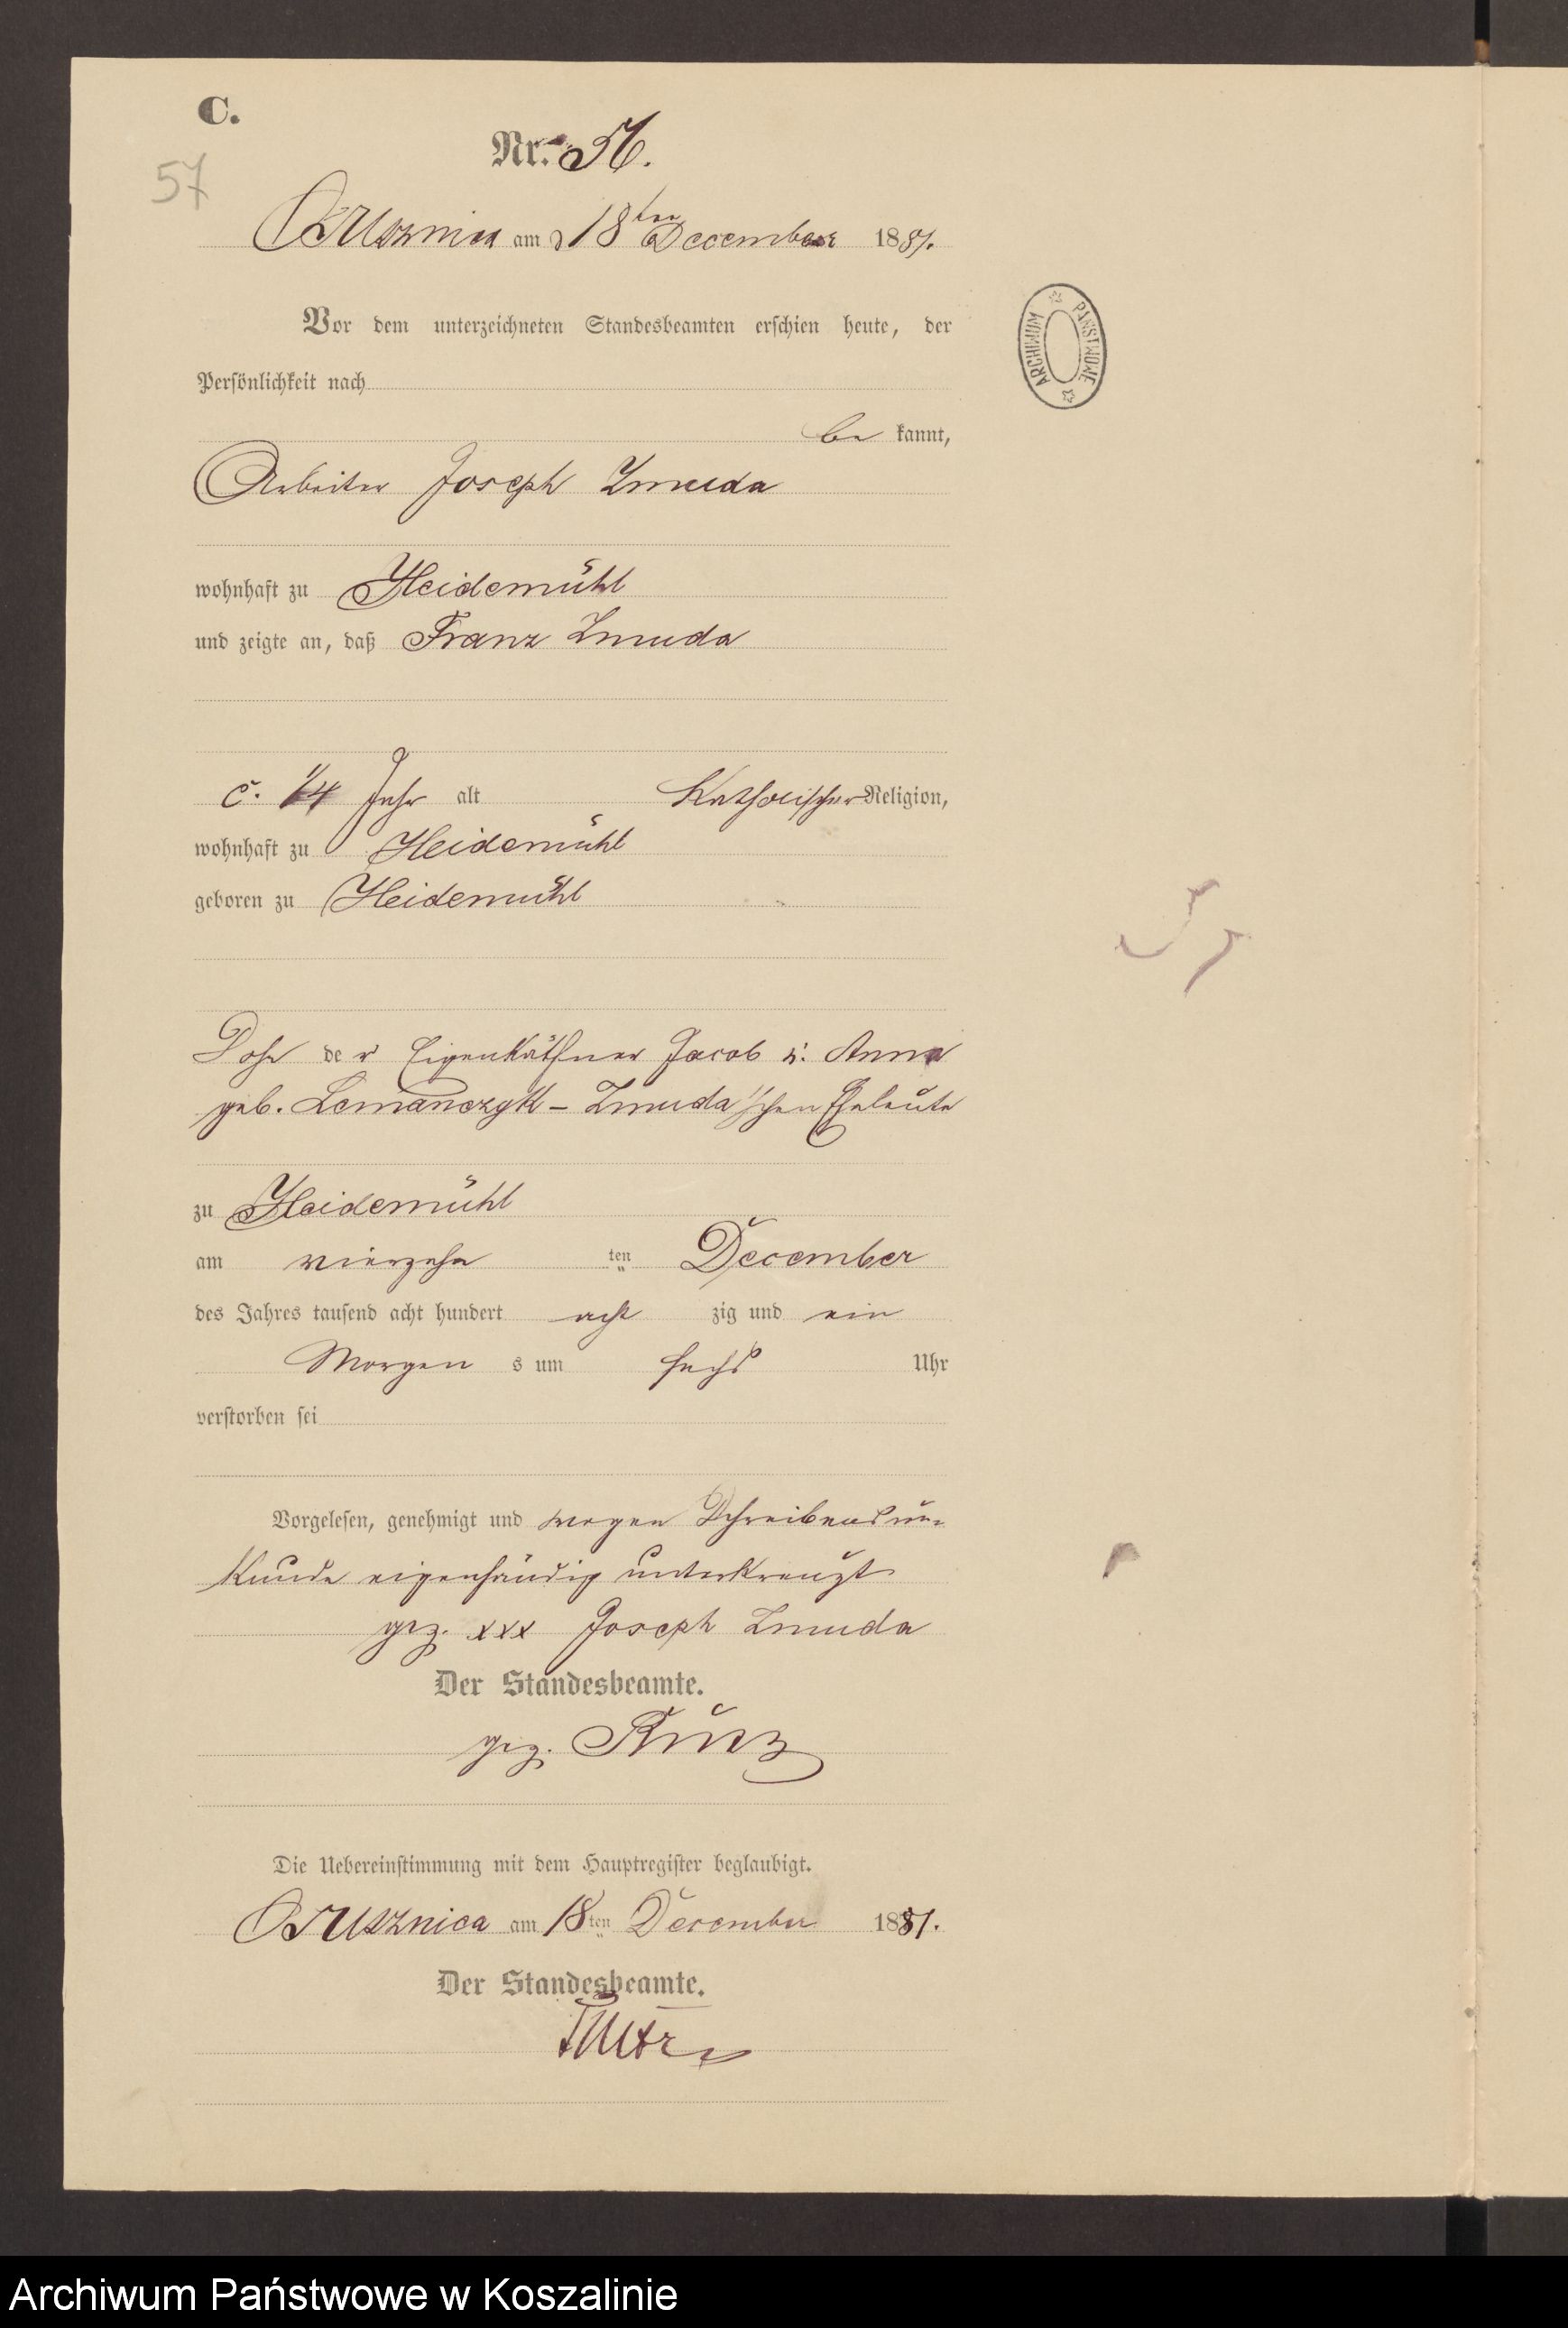 C.
Nr. 56.
57
Borusznica am 18ten December 1881.
Vor dem unterzeichneten Standesbeamten erschien heute, der
Persönlichkeit nach
be kannt,
Arbeiter Joseph Zmuda
wohnhaft zu Heidemühl
und zeigte an, daß Franz Zmuda
c. 1/4 Jahr alt Katholischer Religion,
wohnhaft zu Heidemühl
geboren zu Heidemühl
Sohn der Eigenkäthner Jacob u. Anna
geb. Lemańczyk - Zmuda'schen Eheleute
zu Heidemühl
am vierzehn ten December
des Jahres tausend acht hundert acht zig und ein
Morgen s um sechs Uhr
verstorben sei
Vorgelesen, genehmigt und wegen Schreibensun-
kunde eigenhändig unterkreuzt
gez. xxx Joseph Zmuda
Der Standesbeamte.
gez.
Die Uebereinstimmung mit dem Hauptregister beglaubigt.
Borusznica am 18ten December 1881.
Der Standesbeamte.
ARCHIWUM PAŃSTWOWE
57
Archiwum Państwowe w Koszalinie